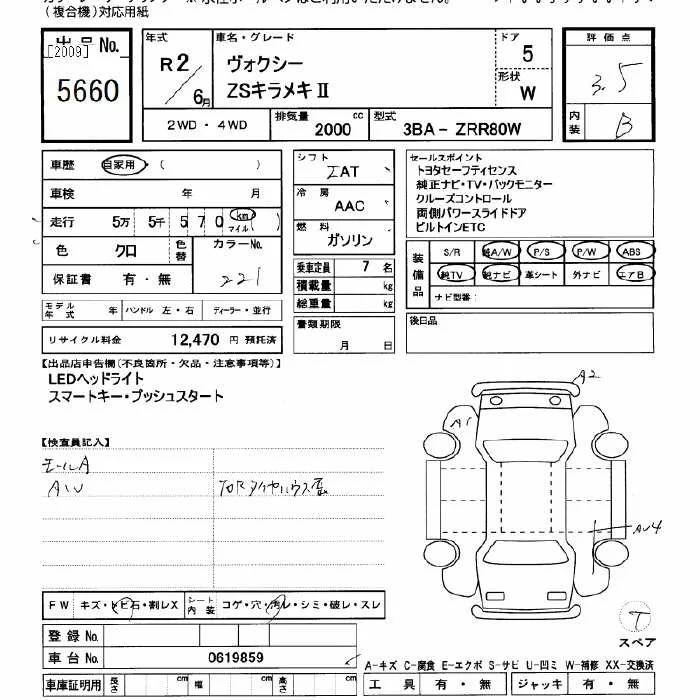 (複合機)対応用紙
出品No.
[2009]
5660
年式
R2/6月
車名・グレード
ヴォクシー
ZSキラメキⅡ
ドア
5
形状
W
評価点
3.5
内装
B
2WD・4WD
排気量
2000 cc
型式
3BA-ZRR80W
車歴 自家用・( )
車検 年 月
走行 5万 5千 5 7 0 km マイル( )
色 クロ
色替
カラーNo.
221
保証書 有・無
モデル年式 年
ハンドル 左・右
ディーラー・並行
リサイクル料金 12,470 円 預託済
シフト
IAT
冷房
AAC
燃料
ガソリン
乗車定員 7 名
積載量 kg
総重量 kg
書類期限
月 日
セールスポイント
トヨタセーフティセンス
純正ナビ・TV・バックモニター
クルーズコントロール
両側パワースライドドア
ビルトインETC
装備品
S/R 純A/W P/S P/W ABS
純TV 純ナビ 革シート 外ナビ エアB
ナビ型番:
後日品
【出品店申告欄(不良箇所・欠品・注意事項等)】
LEDヘッドライト
スマートキー・プッシュスタート
【検査員記入】
モールA
AW
A2
A1
AU4
T
スペア
FW キズ・トビ石・割レX
シート内装 コゲ・穴・汚レ・シミ・破レ・スレ
登録No.
車台No. 0619859
車庫証明用 長さ cm 幅 cm 高さ cm
A-キズ C-腐食 E-エクボ S-サビ U-凹ミ W-補修 XX-交換済
工具 有・無 ジャッキ 有・無